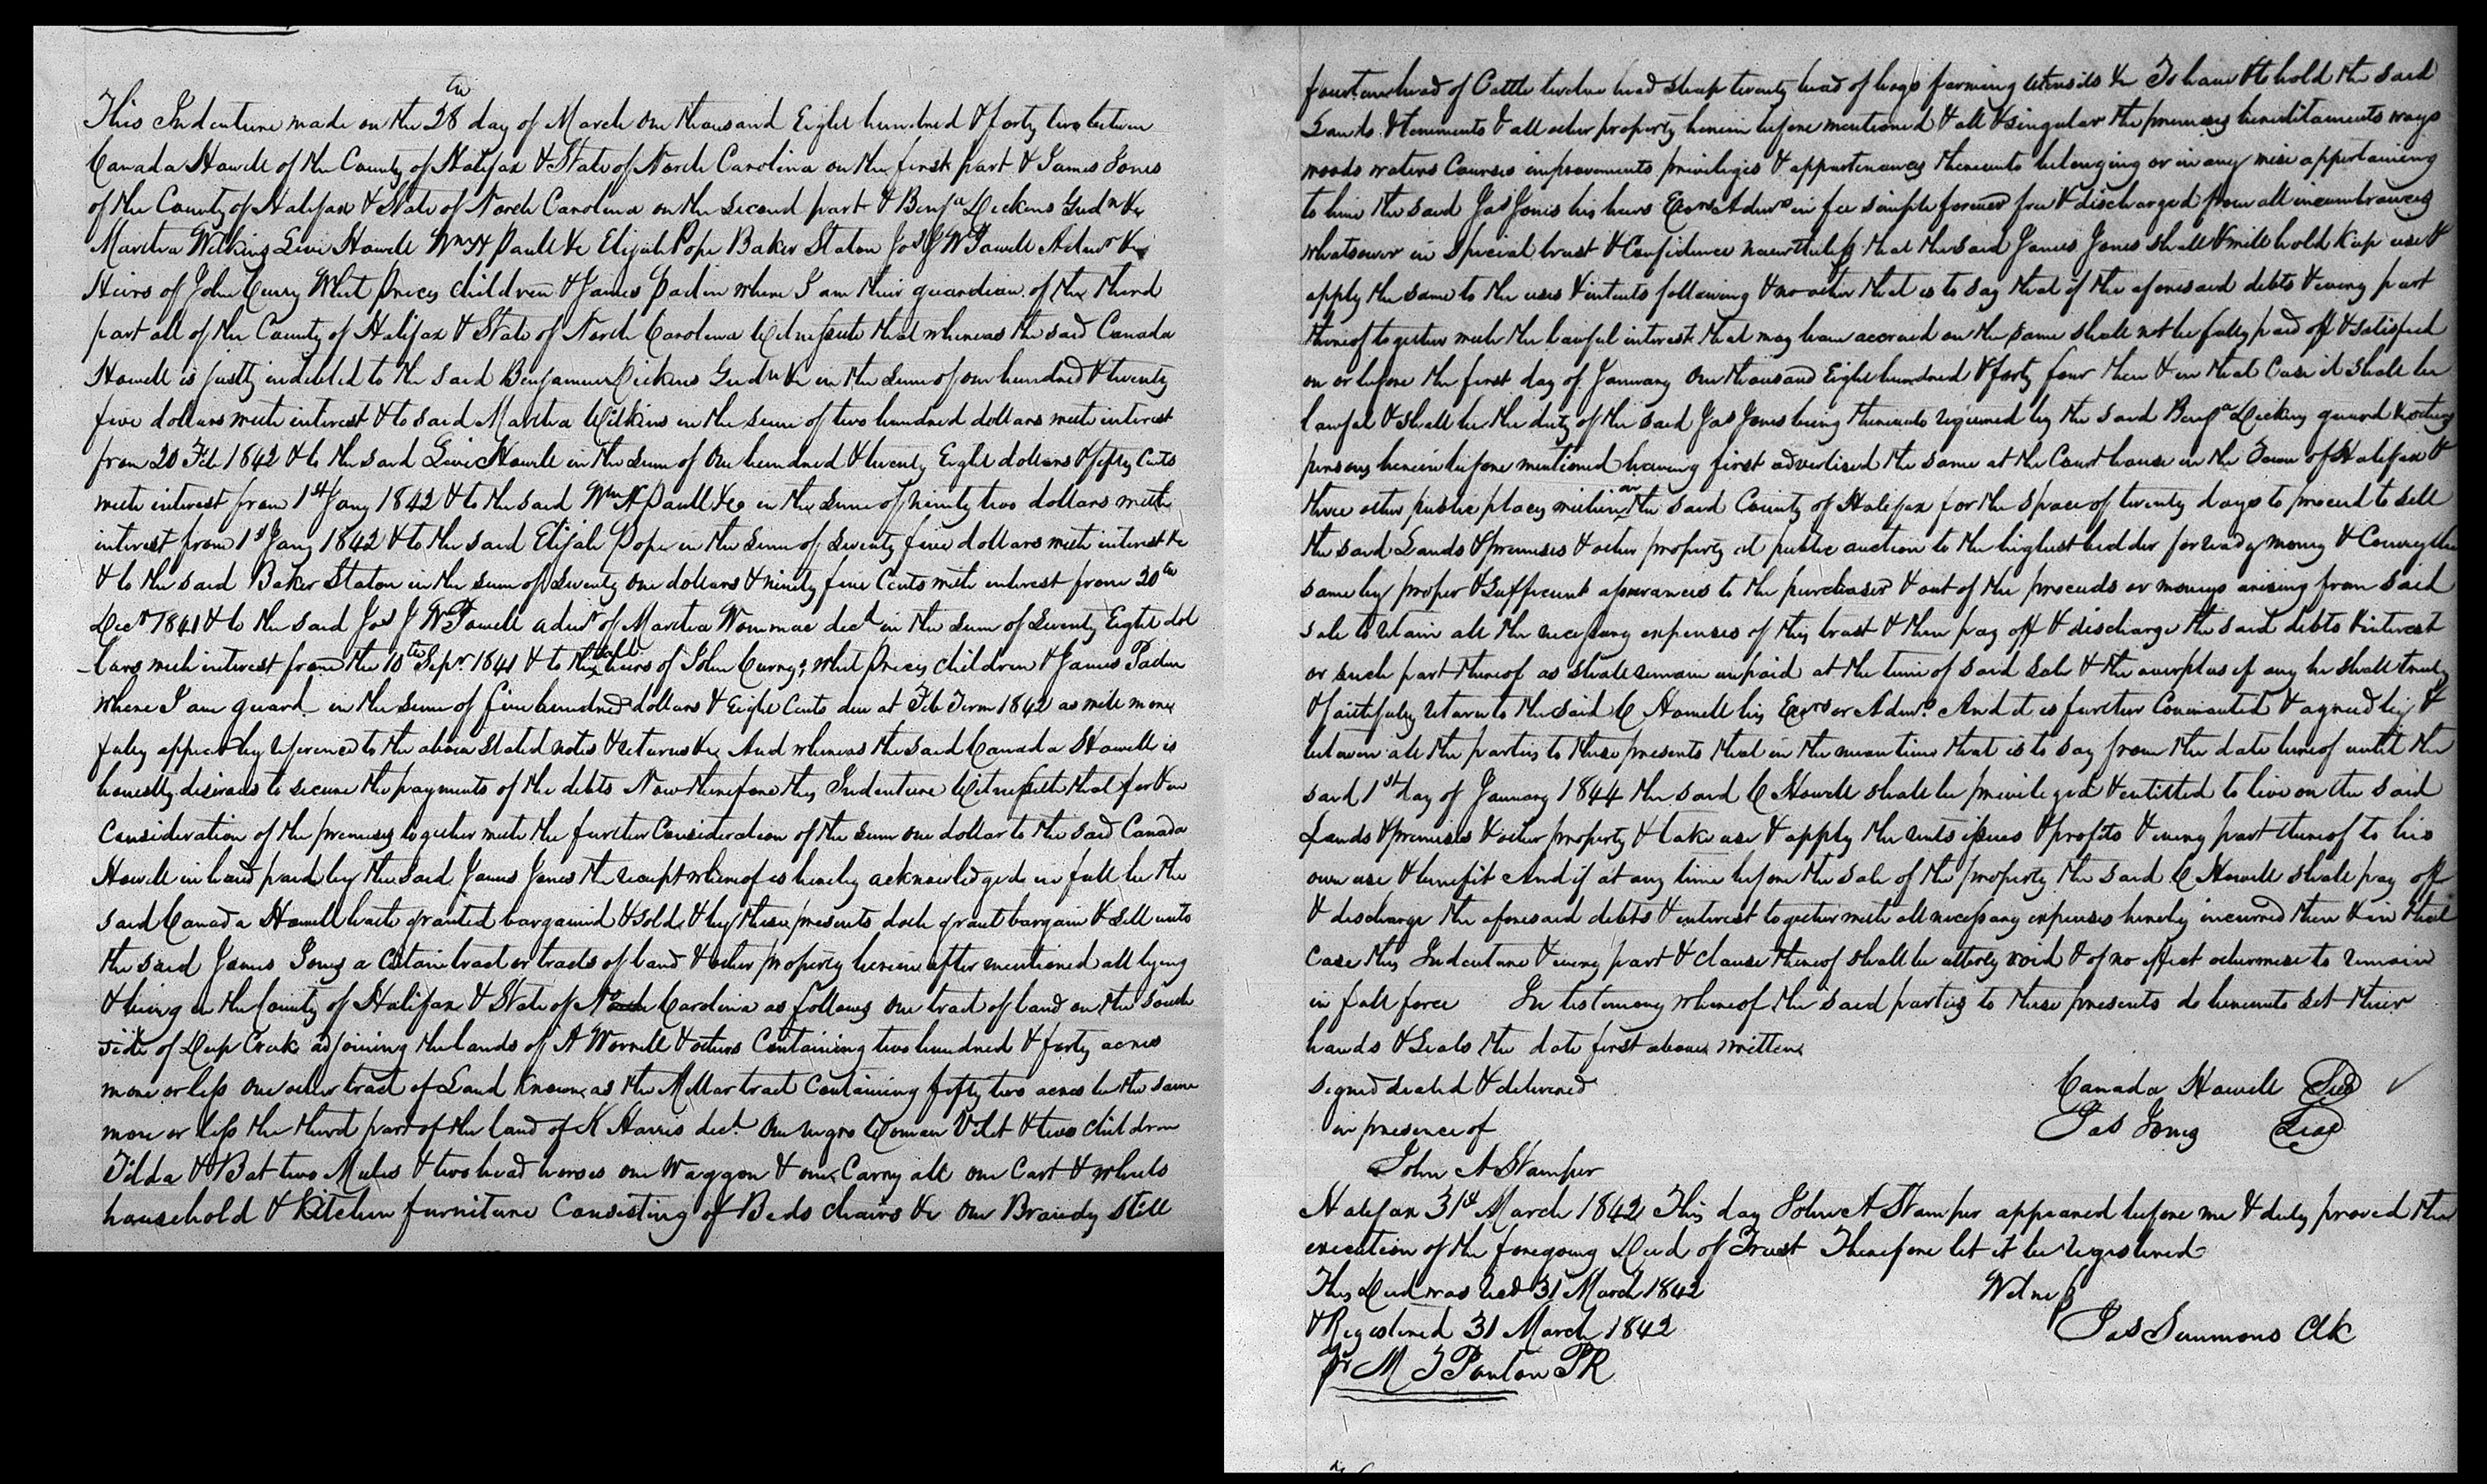 This Indenture made on the 28th day of March one thousand Eight hundred & forty two between
Canada Howell of the County of Halifax & State of North Carolina on the first part & James Jones
of the County of Halifax & State of North Carolina on the second part & Benja Dickens Gudn &c
Martha Wilkins Levi Howell Wm H Paull &c Elijah Pope Baker Staton Jos J W Powell Admr &c
Heirs of John Curry Whit Prices children & James Paden where I am their guardian of the third
part all of the County of Halifax & State of North Carolina Witnesseth that whereas the said Canada
Howell is justly indebted to the said Benjamin Dickens Gudn &c in the sum of one hundred & twenty
five dollars with interest & to said Martha Wilkins in the sum of two hundred dollars with interest
from 20 Feb 1842 & to the said Levi Howell in the sum of One hundred & twenty Eight dollars & fifty Cents
with interest from 1st Jany 1842 & to the said Wm H Paull &Co in the sum of ninety two dollars with
interest from 1st Jany 1842 & to the said Elijah Pope in the sum of Seventy five dollars with interest &c
& to the said Baker Staton in the sum of Seventy one dollars & ninety five Cents with interest from 20th
Decr 1841 & to the said Jos J W Powell admr of Martha Wommac decd in the sum of Seventy Eight dol
lars with interest from the 10th Sepr 1841 & to the heirs of John Curry; Whit Prices children & James Paden
where I am guard in the sum of five hundred dollars & Eight Cents due at Feb Term 1842 as will more
fully appear by reference to the above stated notes & returns &c And whereas the said Canada Howell is
honestly desirous to secure the payments of the debts Now therefore this Indenture Witnesseth that for & in
Consideration of the premises together with the further Consideration of the sum one dollar to the said Canada
Howell in hand paid by the said James Jones the receipt whereof is hereby acknowledged in full he the
said Canada Howell hath granted bargained & sold & by these presents doth grant bargain & sell unto
the said James Jones a Certain tract or tracts of land & other property herein after mentioned all lying
& being in the County of Halifax & State of No Carolina as follows one tract of land on the South
side of Deep Creek adjoining the lands of A Worrell & others Containing two hundred & forty acres
more or less one other tract of Land known as the Millar tract Containing fifty two acres be the same
more or less the third part of the land of K Harris decd. One negro Woman Vilet & two children
Tilda & Bat two Mules & two head horses one Waggon & one Carry all one Cart & wheels
household & Kitchen furniture Consisting of Beds chairs &c one Brandy Still
fourteen head of Cattle twelve head sheep twenty head of hogs farming utensils &c To have & to hold the said
Lands & tenements & all other property herein before mentioned & all & singular the premises hereditaments ways
woods waters Courses improvements priviliges & appurtenances thereunto belonging or in any wise appertaining
to him the said Jas Jones his heirs Exors Admrs in fee simple forever free & discharged from all incumbrances
whatsoever in Special trust & Confidence nevertheless that the said James Jones shall & will hold keep use &
apply the same to the uses & intents following & no other that is to say that if the aforesaid debts & every part
thereof together with the lawful interest that may have accrued on the same shall not be fully paid off & satisfied
on or before the first day of January One thousand Eight hundred & forty four then & in that Case it shall be
lawful & shall be the duty of the said Jas Jones being thereunto required by the said Benja Dickens guard & other
persons herein before mentioned having first advertised the same at the Court house in the Town of Halifax &
three other public places within the said County of Halifax for the space of twenty days to proceed to sell
the said Lands & premises & other property at public auction to the highest bidder for ready money & Convey the
same by proper & sufficient assurances to the purchaser & out of the proceeds or moneys arising from said
sale to retain all the necessary expenses of this trust & then pay off & discharge the said debts & interest
or such part thereof as shall remain unpaid at the time of said sale & the overplus if any he shall truly
& faithfully return to the said C Howell his Exors or Admrs. And it is further Covenanted & agreed by &
between all the parties to these presents that in the mean time that is to say from the date hereof until the
said 1st day of January 1844 the said C Howell shall be priviledged & entitled to live on the said
Lands & premises & other property & take use & apply the rents issues & profits & every part thereof to his
own use & benefit And if at any time before the sale of the property the said C Howell shall pay off
& discharge the aforesaid debts & interest together with all necessary expenses hereby incurred then & in that
Case this Indenture & every part & clause thereof shall be utterly void & of no effect otherwise to remain
in full force In testimony whereof the said parties to these presents do hereunto set their
hands & Seals the date first above written
signed sealed & delivered Canada Howell Seal
in presence of Jas Jones Seal
John A Stamper
Halifax 31st March 1842 This day John A Stamper appeared before me & duly proved the
execution of the foregoing Deed of Trust Therefore let it be registered
This Deed was Recd 31 March 1842 Witness
& Registered 31 March 1842 Jas Simmons Clk
pr M T Ponton PR